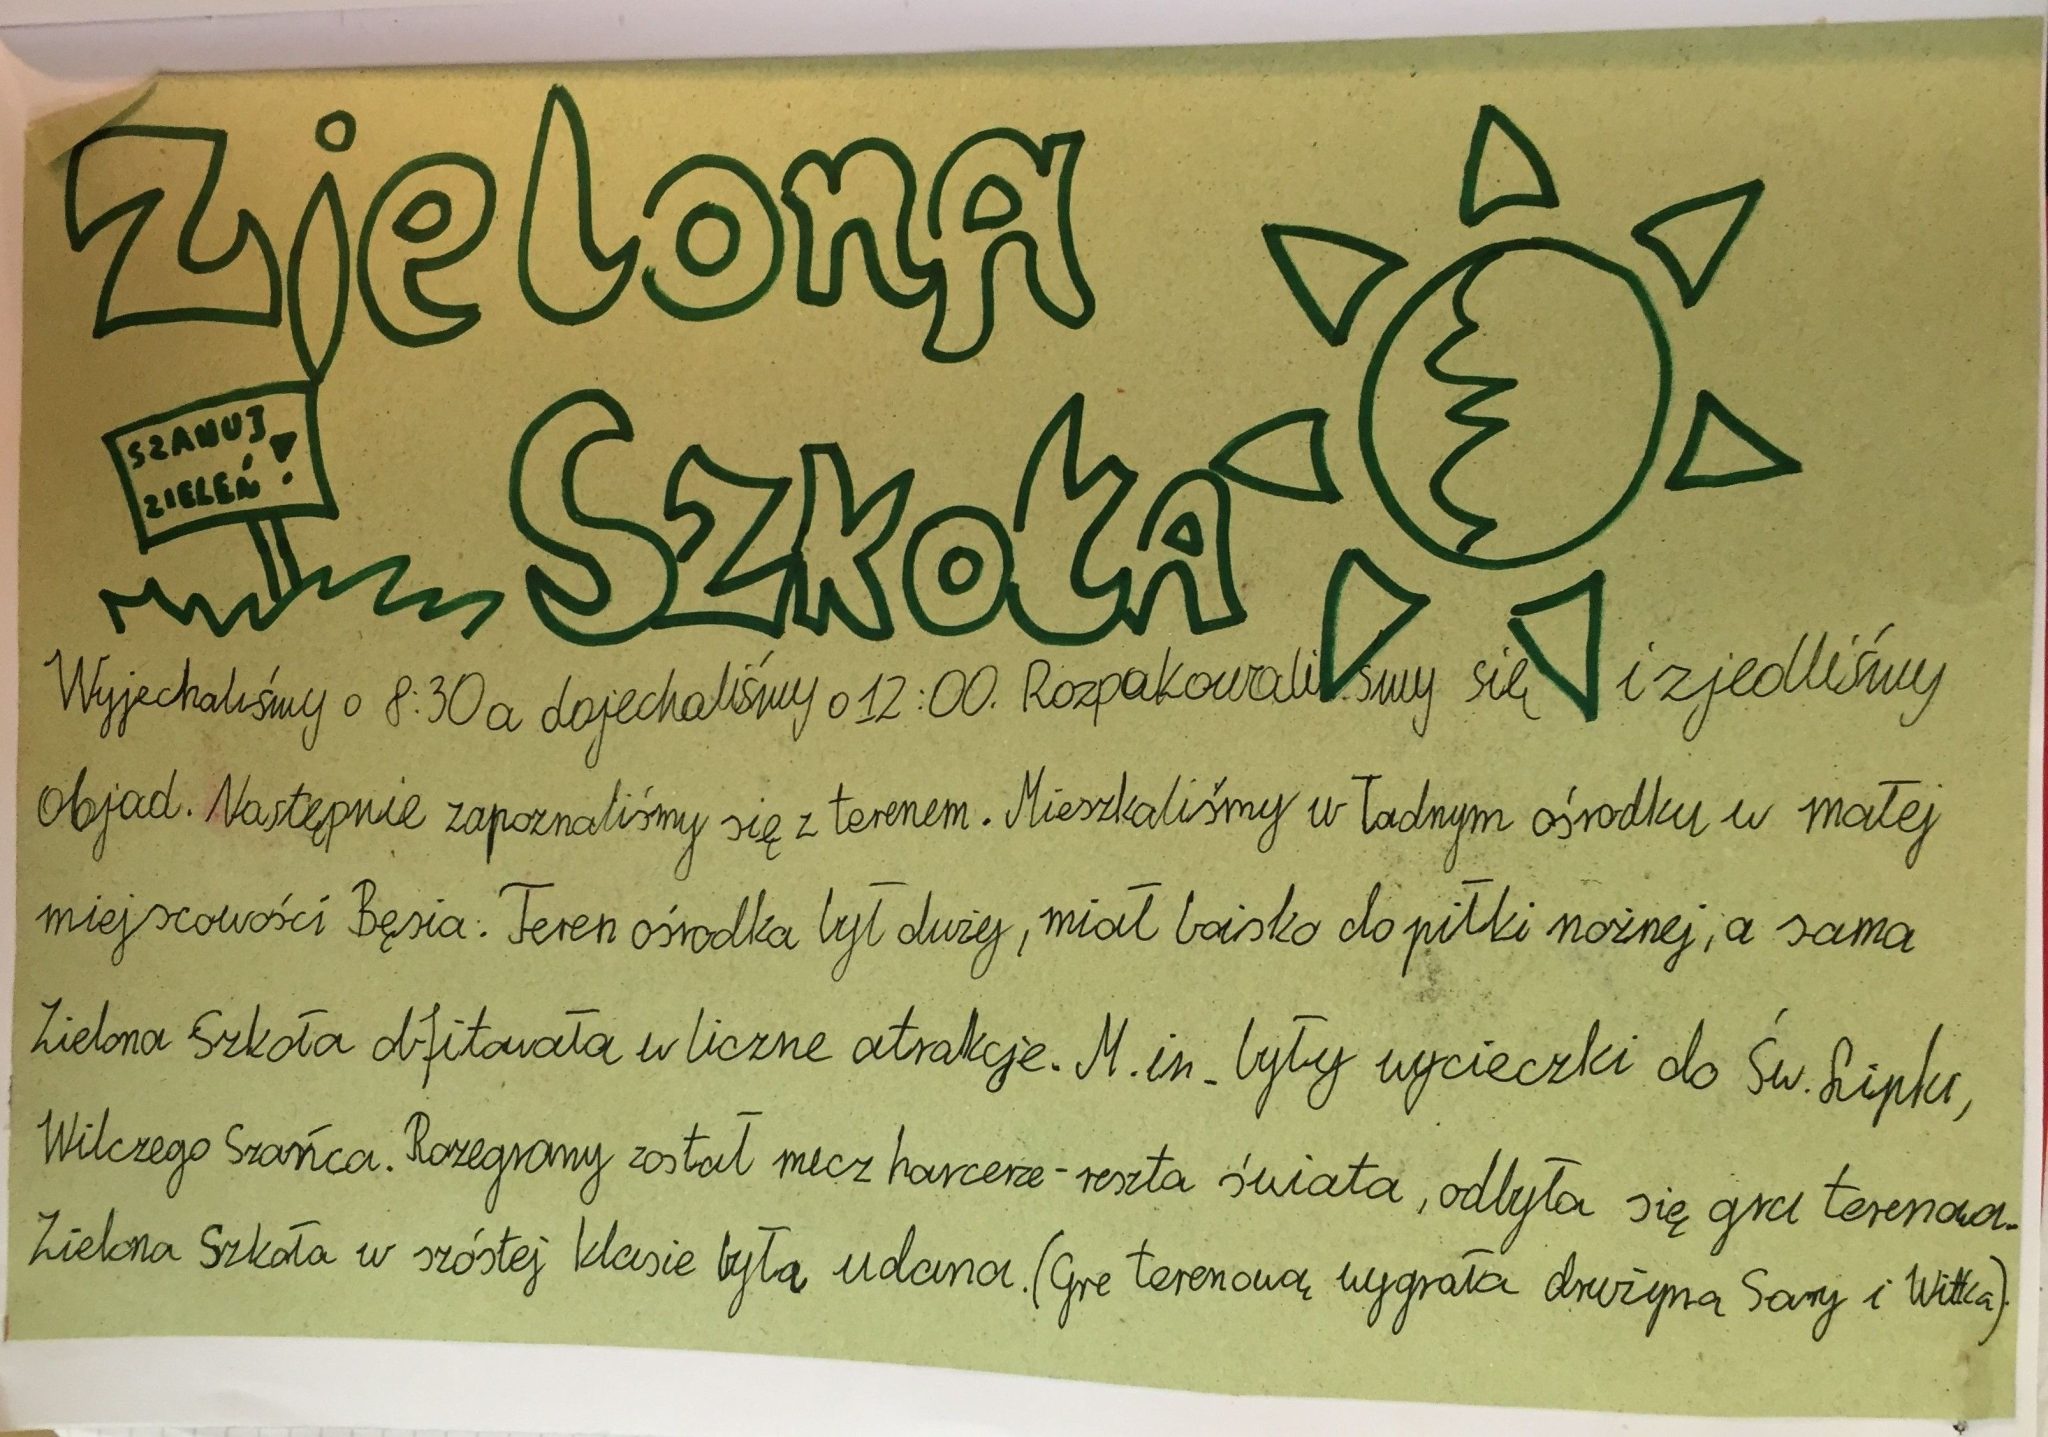 Zielona
Szkoła
SZANUJ
ZIELEŃ!
Wyjechaliśmy o 8:30 a dojechaliśmy o 12:00. Rozpakowaliśmy się i zjedliśmy
objad. Następnie zapoznaliśmy się z terenem. Mieszkaliśmy w ładnym ośrodku w małej
miejscowości Bęsia. Teren ośrodka był duży, miał boisko do piłki nożnej, a sama
Zielona Szkoła obfitowała w liczne atrakcje. M.in. były wycieczki do Św. Lipki,
Wilczego Szańca. Rozegrany został mecz harcerze-reszta świata, odbyła się gra terenowa.
Zielona Szkoła w szóstej klasie była udana. (Grę terenową wygrała drużyna Sary i Witka).